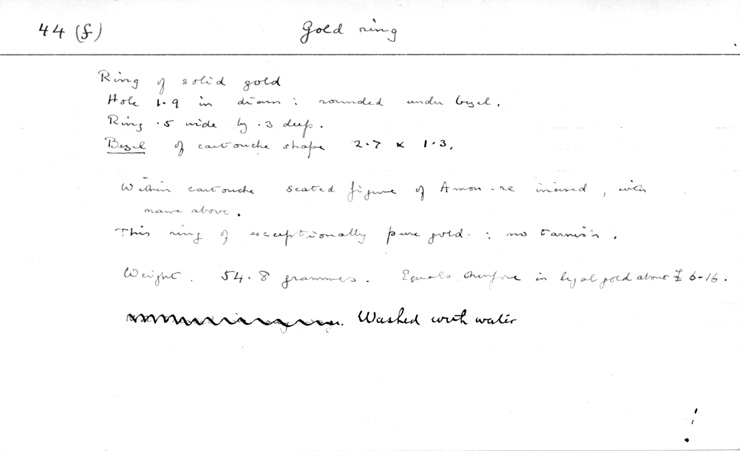 44 (f)
Gold ring
Ring of solid gold
Hole 1.9 in diam: rounded under bezel.
Ring .5 wide by .3 deep.
Bezel of cartouche shape 2.7 x 1.3.
Within cartouche seated figure of Amon-re incised, with
name above.
This ring of exceptionally pure gold: no tarnish.
Weight. 54.8 grammes. Equals therefore in legal gold about £ 6-16.
Washed with water